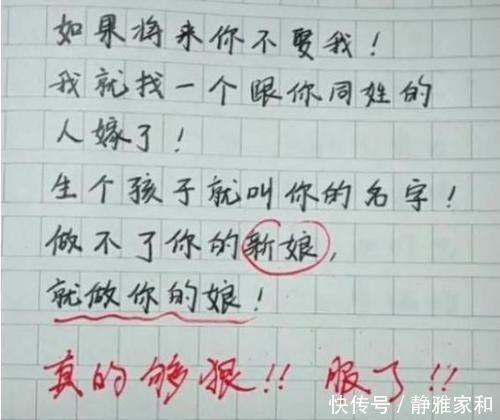 如果将来你不娶我！
我就找一个跟你同姓的
人嫁了！
生个孩子就叫你的名字！
做不了你的新娘，
就做你的娘！
真的够狠!! 服了!!
快传号／静雅家和